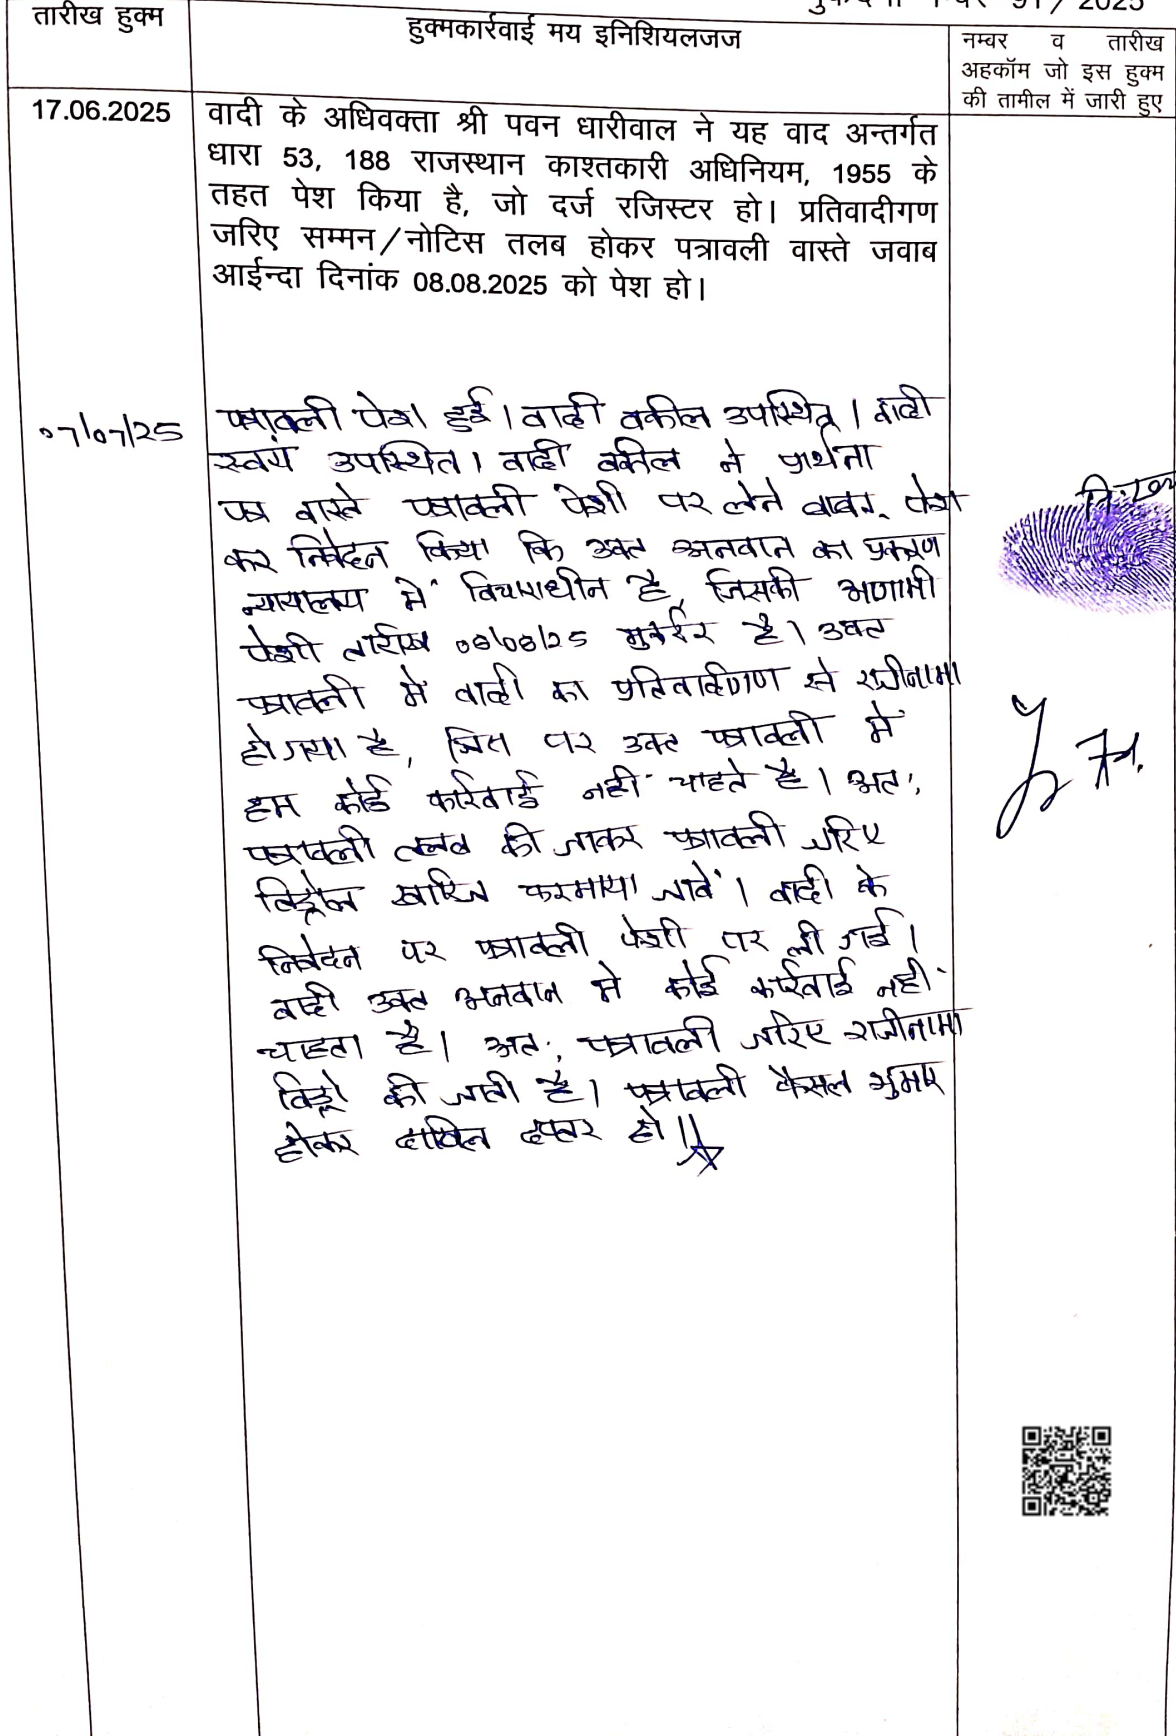 मुकदमा नम्बर 91/2025
तारीख हुक्म
हुक्मकार्रवाई मय इनिशियलजज
नम्बर व तारीख
अहकॉम जो इस हुक्म
की तामील में जारी हुए
17.06.2025
वादी के अधिवक्ता श्री पवन धारीवाल ने यह वाद अन्तर्गत
धारा 53, 188 राजस्थान काश्तकारी अधिनियम, 1955 के
तहत पेश किया है, जो दर्ज रजिस्टर हो। प्रतिवादीगण
जरिए सम्मन/नोटिस तलब होकर पत्रावली वास्ते जवाब
आईन्दा दिनांक 08.08.2025 को पेश हो।
07/07/25
पत्रावली पेश हुई। वादी वकील उपस्थित। वादी
स्वयं उपस्थित। वादी वकील ने प्रार्थना
पत्र वास्ते पत्रावली पेशी पर लेने बाबत् पेश
कर निवेदन किया कि उक्त अनवान का प्रकरण
न्यायालय में विचाराधीन है, जिसकी आगामी
पेशी तारीख 08/08/25 मुकर्रर है। उक्त
पत्रावली में वादी का प्रतिवादीगण से राजीनामा
हो गया है, जिस पर उक्त पत्रावली में
हम कोई कार्रवाई नहीं चाहते है। अतः
पत्रावली तलब की जाकर पत्रावली जरिए
विड्रोल खारिज फरमाया जावें। वादी के
निवेदन पर पत्रावली पेशी पर ली गई।
वादी उक्त अनवान मे कोई कार्रवाई नहीं
चाहता है। अतः पत्रावली जरिए राजीनामा
विड्रो की जाती है। पत्रावली फैसल शुमार
होकर दाखिल दफ्तर हो॥